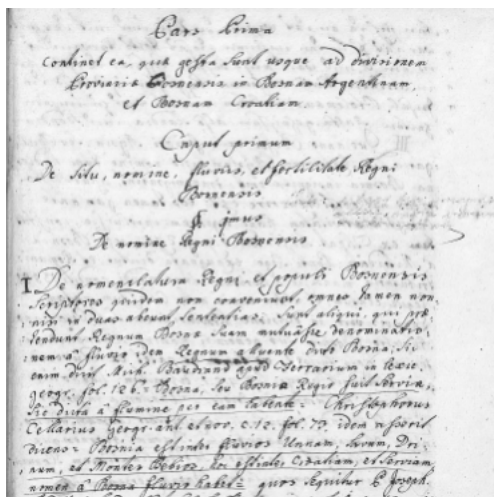 Pars Prima
Continet ea, quæ gesta sunt usque ad divisionem
Provinciæ Bosnensis in Bosnam Argentinam,
et Bosnam Croatiam.
Caput primum
De situ, nomine, fluviis, et fertilitate Regni
Bosnensis
§ imus
De nomine Regni Bosnensis
I. De nomenclatura Regni et populi Bosnensis
Scriptores quidem non conveniunt, omnes tamen non
nisi in duas abeunt sententias. Sunt aliqui, qui præ
tendunt Regnum Bosnæ suam mutuasse denominatio
nem a fluvio idem Regnum alluente dicto Bosna, Si
enim dicit Mich. Baudrand apud Ferrarium in lexic.
geogr. fol. 126. Bosna, seu Bosnia Regio fuit Serviæ,
sic dicta a flumine per eam labente. Christophorus
Cellarius Geogr. ant. et nov. c. 12. fol. 73. idem asserit
dicens: Bosnia est inter fluvios Unnam, Savum, Dri
num, et Montes Croatiam, et Serviam
nomen a Bosna fluvio habet quos sequitur P. Joseph.